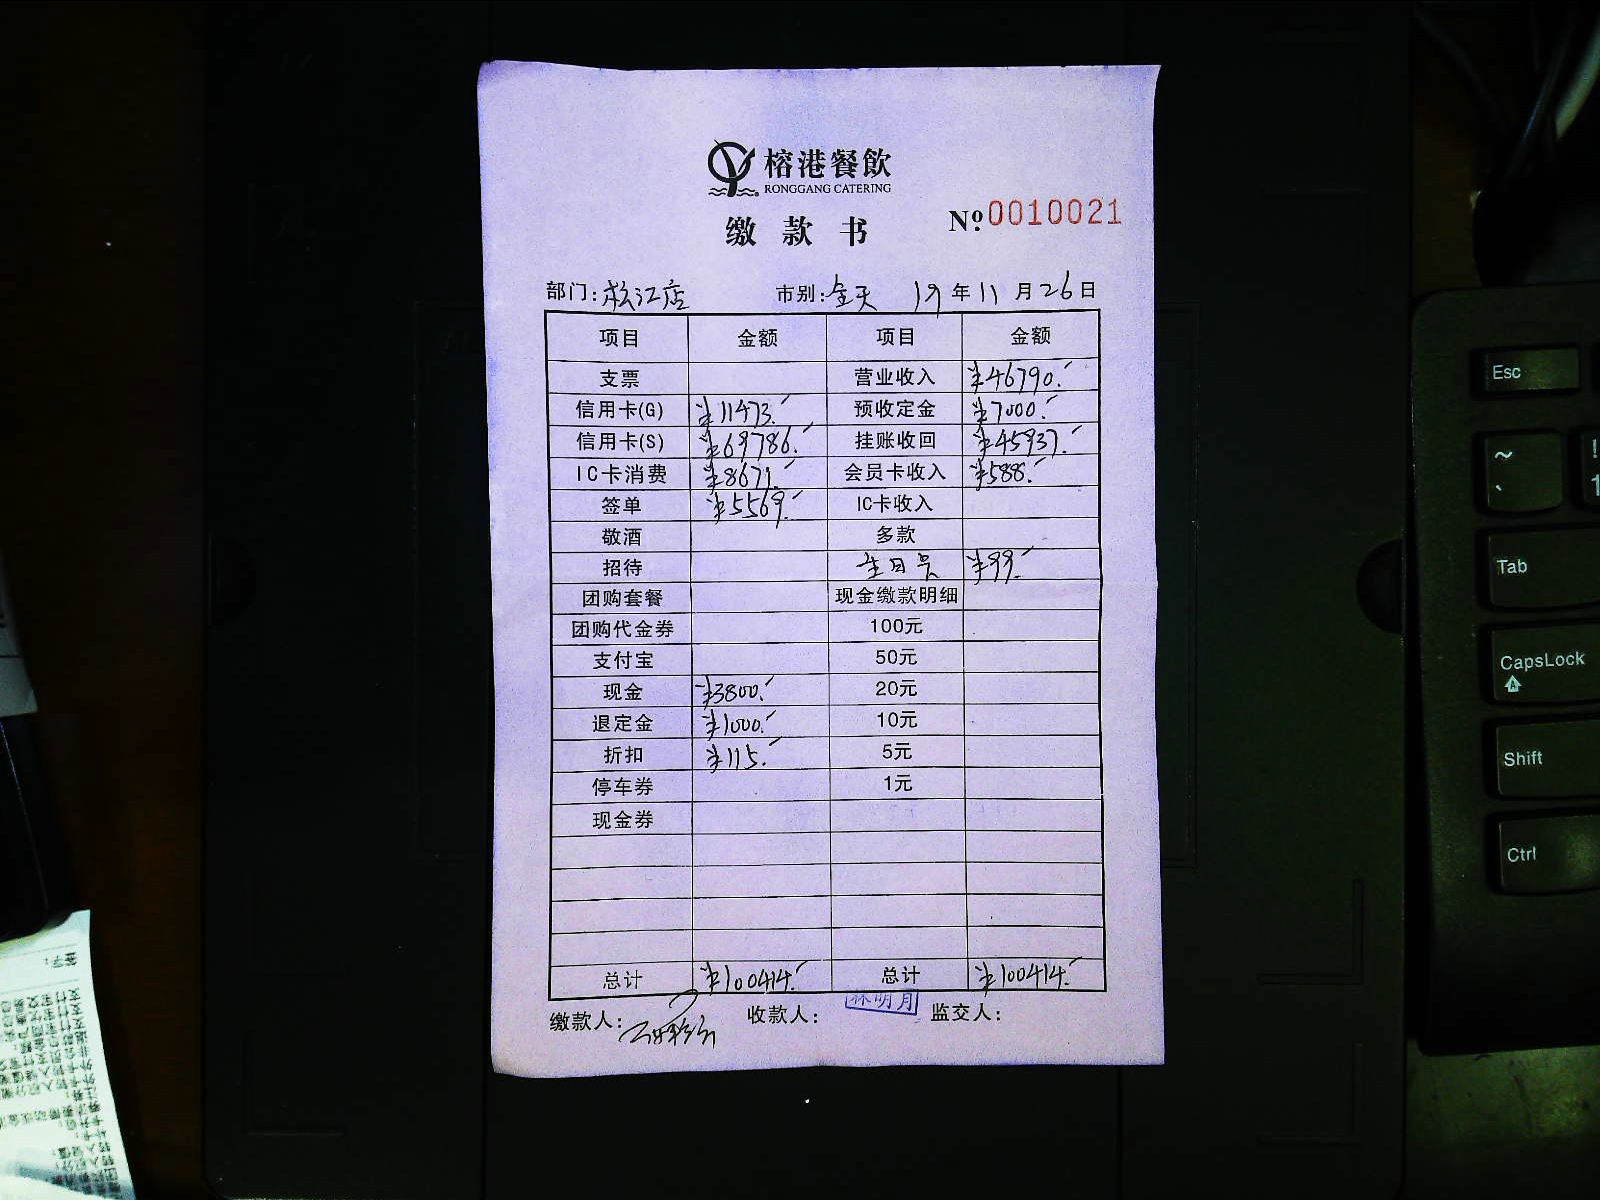 榕港餐飲
RONGGANG CATERING
缴款书
Nº 0010021
部门:松江店 市别:全天 19年11月26日
项目 金额 项目 金额
支票 营业收入 ¥46790.
信用卡(G) ¥11473. 预收定金 ¥7000.
信用卡(S) ¥69786. 挂账收回 ¥45937.
IC卡消费 ¥8671. 会员卡收入 ¥588.
签单 ¥5569. IC卡收入
敬酒 多款
招待 生日 ¥99.
团购套餐 现金缴款明细
团购代金券 100元
支付宝 50元
现金 ¥3800. 20元
退定金 ¥1000. 10元
折扣 ¥115. 5元
停车券 1元
现金券
总计 ¥100414. 总计 ¥100414.
缴款人: 收款人: 林明月 监交人:
Esc
~
Tab
CapsLock
Shift
Ctrl